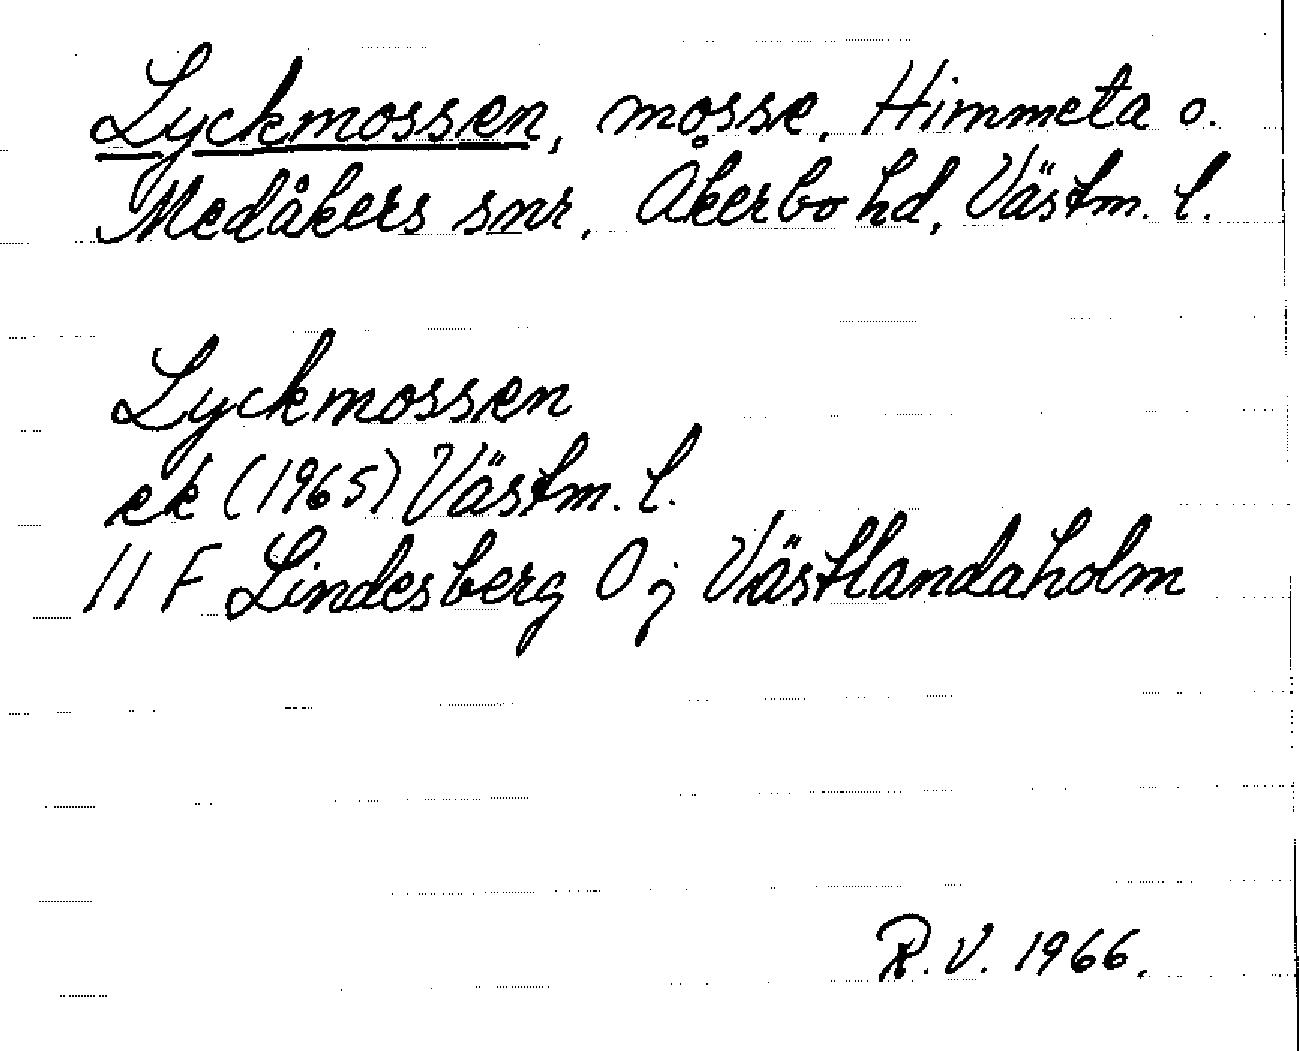 Lyckmossen, mosse, Himmeta o.
Medåkers snr, Åkerbo hd, Västm. l.
Lyckmossen
ek (1965) Västm. l.
11 F Lindesberg O j Västlandaholm
R.V. 1966.